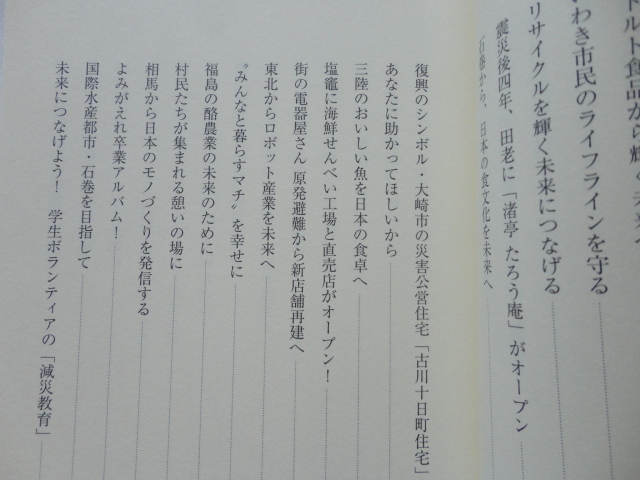 トルト食品から輝く未来へ
わき市民のライフラインを守る
リサイクルを輝く未来につなげる
震災後四年、田老に「渚亭 たろう庵」がオープン
石巻から、日本の食文化を未来へ
復興のシンボル・大崎市の災害公営住宅「古川十日町住宅」
あなたに助かってほしいから
三陸のおいしい魚を日本の食卓へ
塩竈に海鮮せんべい工場と直売店がオープン！
街の電器屋さん 原発避難から新店舗再建へ
東北からロボット産業を未来へ
〝みんなと暮らすマチ〟を幸せに
福島の酪農業の未来のために
村民たちが集まれる憩いの場に
相馬から日本のモノづくりを発信する
よみがえれ卒業アルバム！
国際水産都市・石巻を目指して
未来につなげよう！ 学生ボランティアの「減災教育」